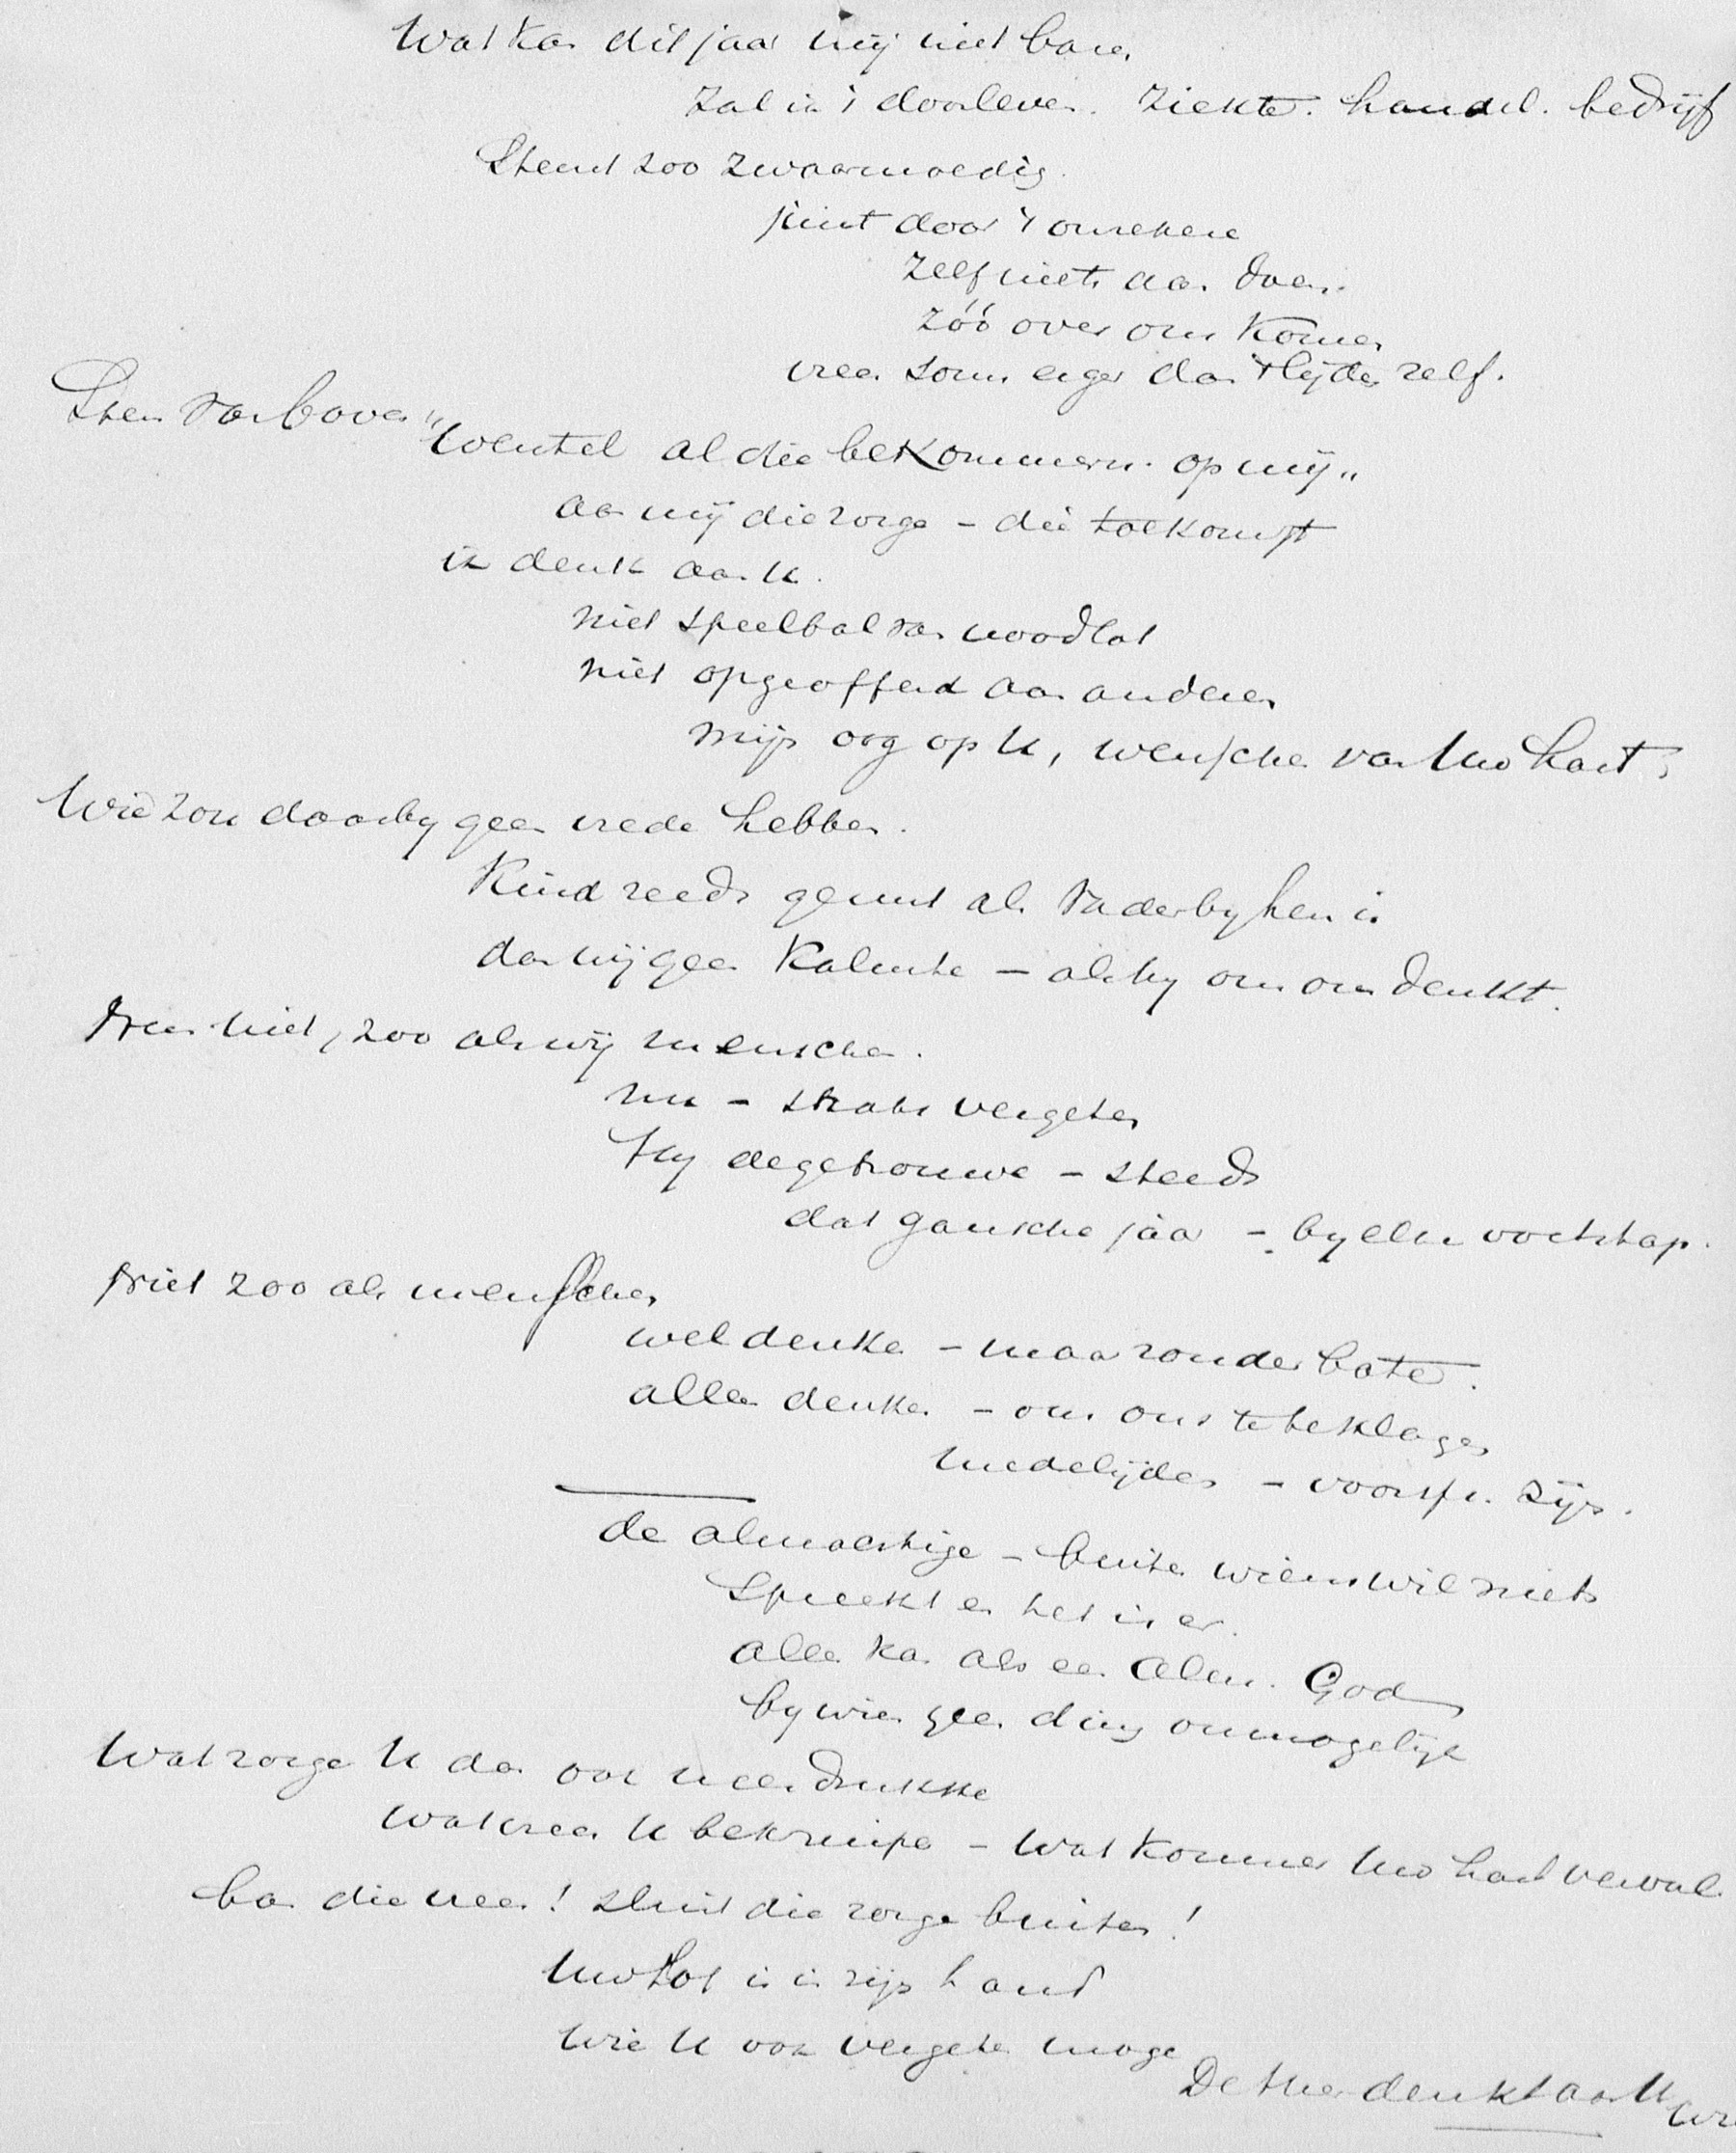 Wat kan dit jaar mij niet baren
Zal ik 't doorleven. Ziekte. handel. bedrijf
Stemt zoo zwaarmoedig.
juist door 't onzekere
Zelf niets aan doen.
zóó over ons komen
vrees soms erger dan 't lijden zelf.
Stem van boven
"Wentel al die bekommern. op mij"
aan mij die zorge - die toekomst
ik denk aan U.
niet speelbal van noodlot
niet opgeofferd aan anderen
mijn oog op U, wenschen van Uw hart
Wie zou daarby geen vrede hebben.
Kind reeds gerust als Vader by hen is
dan wij geen Kalmte - als hy om ons denkt.
niet, zoo als wij menschen.
nu - straks vergeten
Hy de getrouwe - steeds
dat gansche jaar - by elke voetstap.
Niet zoo als menschen
wel denken - maar zonder baten.
alleen denken - om ons te beklagen
medelijden - voorspr. zijn.
de almachtige - buiten wiens wil niets
Spreekt en het is er.
alles kan als een Alm. God
by wien geen ding onmogelijk
Wat zorgen U dan ook neerdrukke
wat vrees U bekruipe - wat kommer Uw hart vervul.
ban die vrees! sluit die zorgen buiten!
Uw Lot is in zijn hand
wie U ook vergeten moge
De Heer denkt aan U